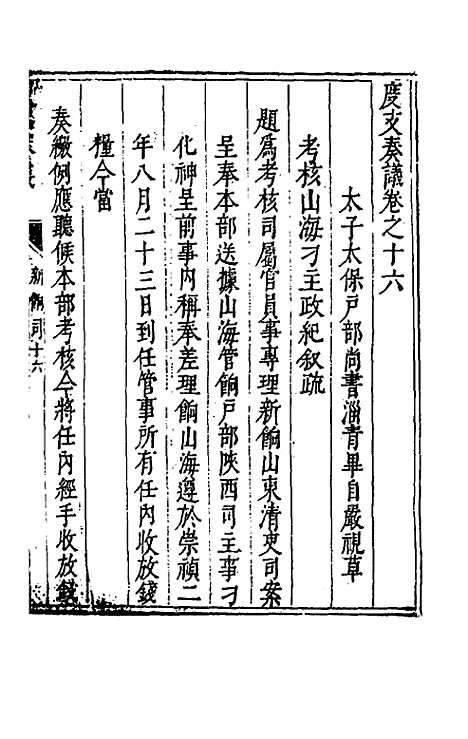 度支奏議卷之十六
太子太保戶部尚書淄青畢自嚴視草
考核山海刁主政紀叙疏
題爲考核司屬官員事專理新餉山東清吏司案
呈奉本部送據山海管餉戶部陝西司主事刁
化神呈前事內稱奉差理餉山海遵於崇禎二
年八月二十三日到任管事所有任內收放錢
糧今當
奏繳例應聽候本部考核今將任內經手收放錢
新餉司十六